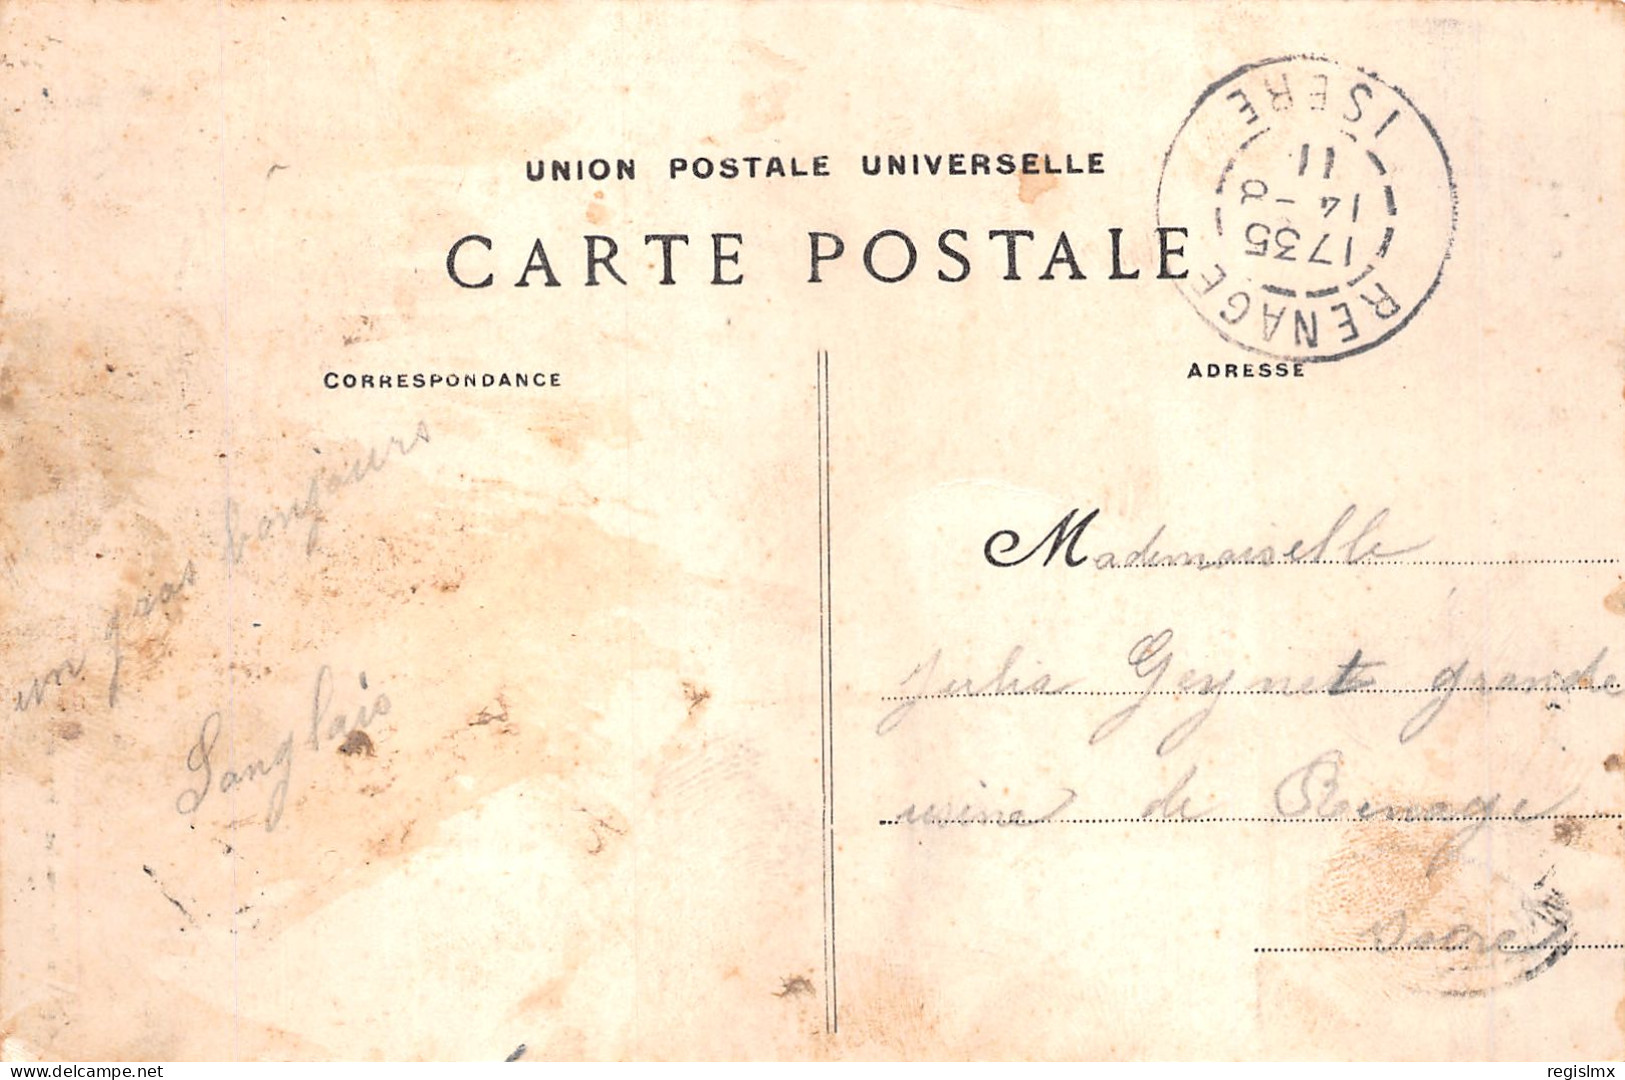 UNION POSTALE UNIVERSELLE
CARTE POSTALE
RENAGE
1735
14 - 8
11
ISERE
CORRESPONDANCE
ADRESSE
un gros bonjours
Langlais
Mademoiselle
Julia Geynet grande
usine de Renage
Isère
delcampe.net
regislmx